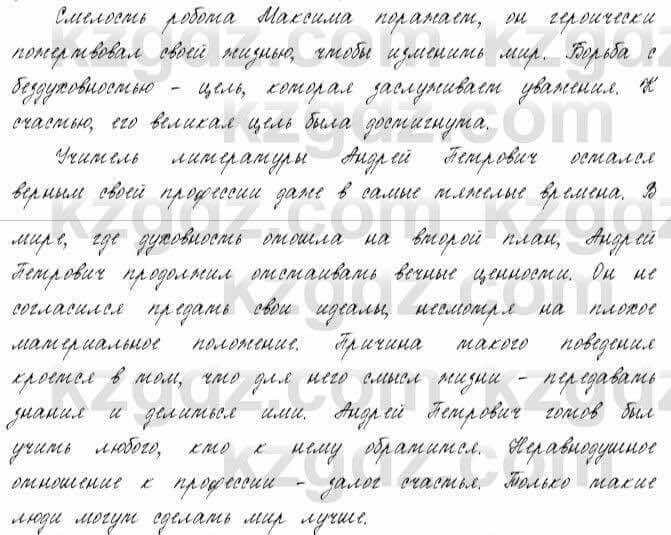 Смелость робота Максима поражает, он героически
пожертвовал своей жизнью, чтобы изменить мир. Борьба с
бездуховностью – цель, которая заслуживает уважения. К
счастью, его великая цель была достигнута.
Учитель литературы Андрей Петрович остался
верным своей профессии даже в самые тяжелые времена. В
мире, где духовность отошла на второй план, Андрей
Петрович продолжил отстаивать вечные ценности. Он не
согласился предать свои идеалы, несмотря на плохое
материальное положение. Причина такого поведения
кроется в том, что для него смысл жизни – передавать
знания и делиться ими. Андрей Петрович готов был
учить любого, кто к нему обратится. Неравнодушное
отношение к профессии – залог счастья. Только такие
люди могут сделать мир лучше.
kzgdz.com
kzgdz.com
kzgdz.com
kzgdz.com
kzgdz.com
kzgdz.com